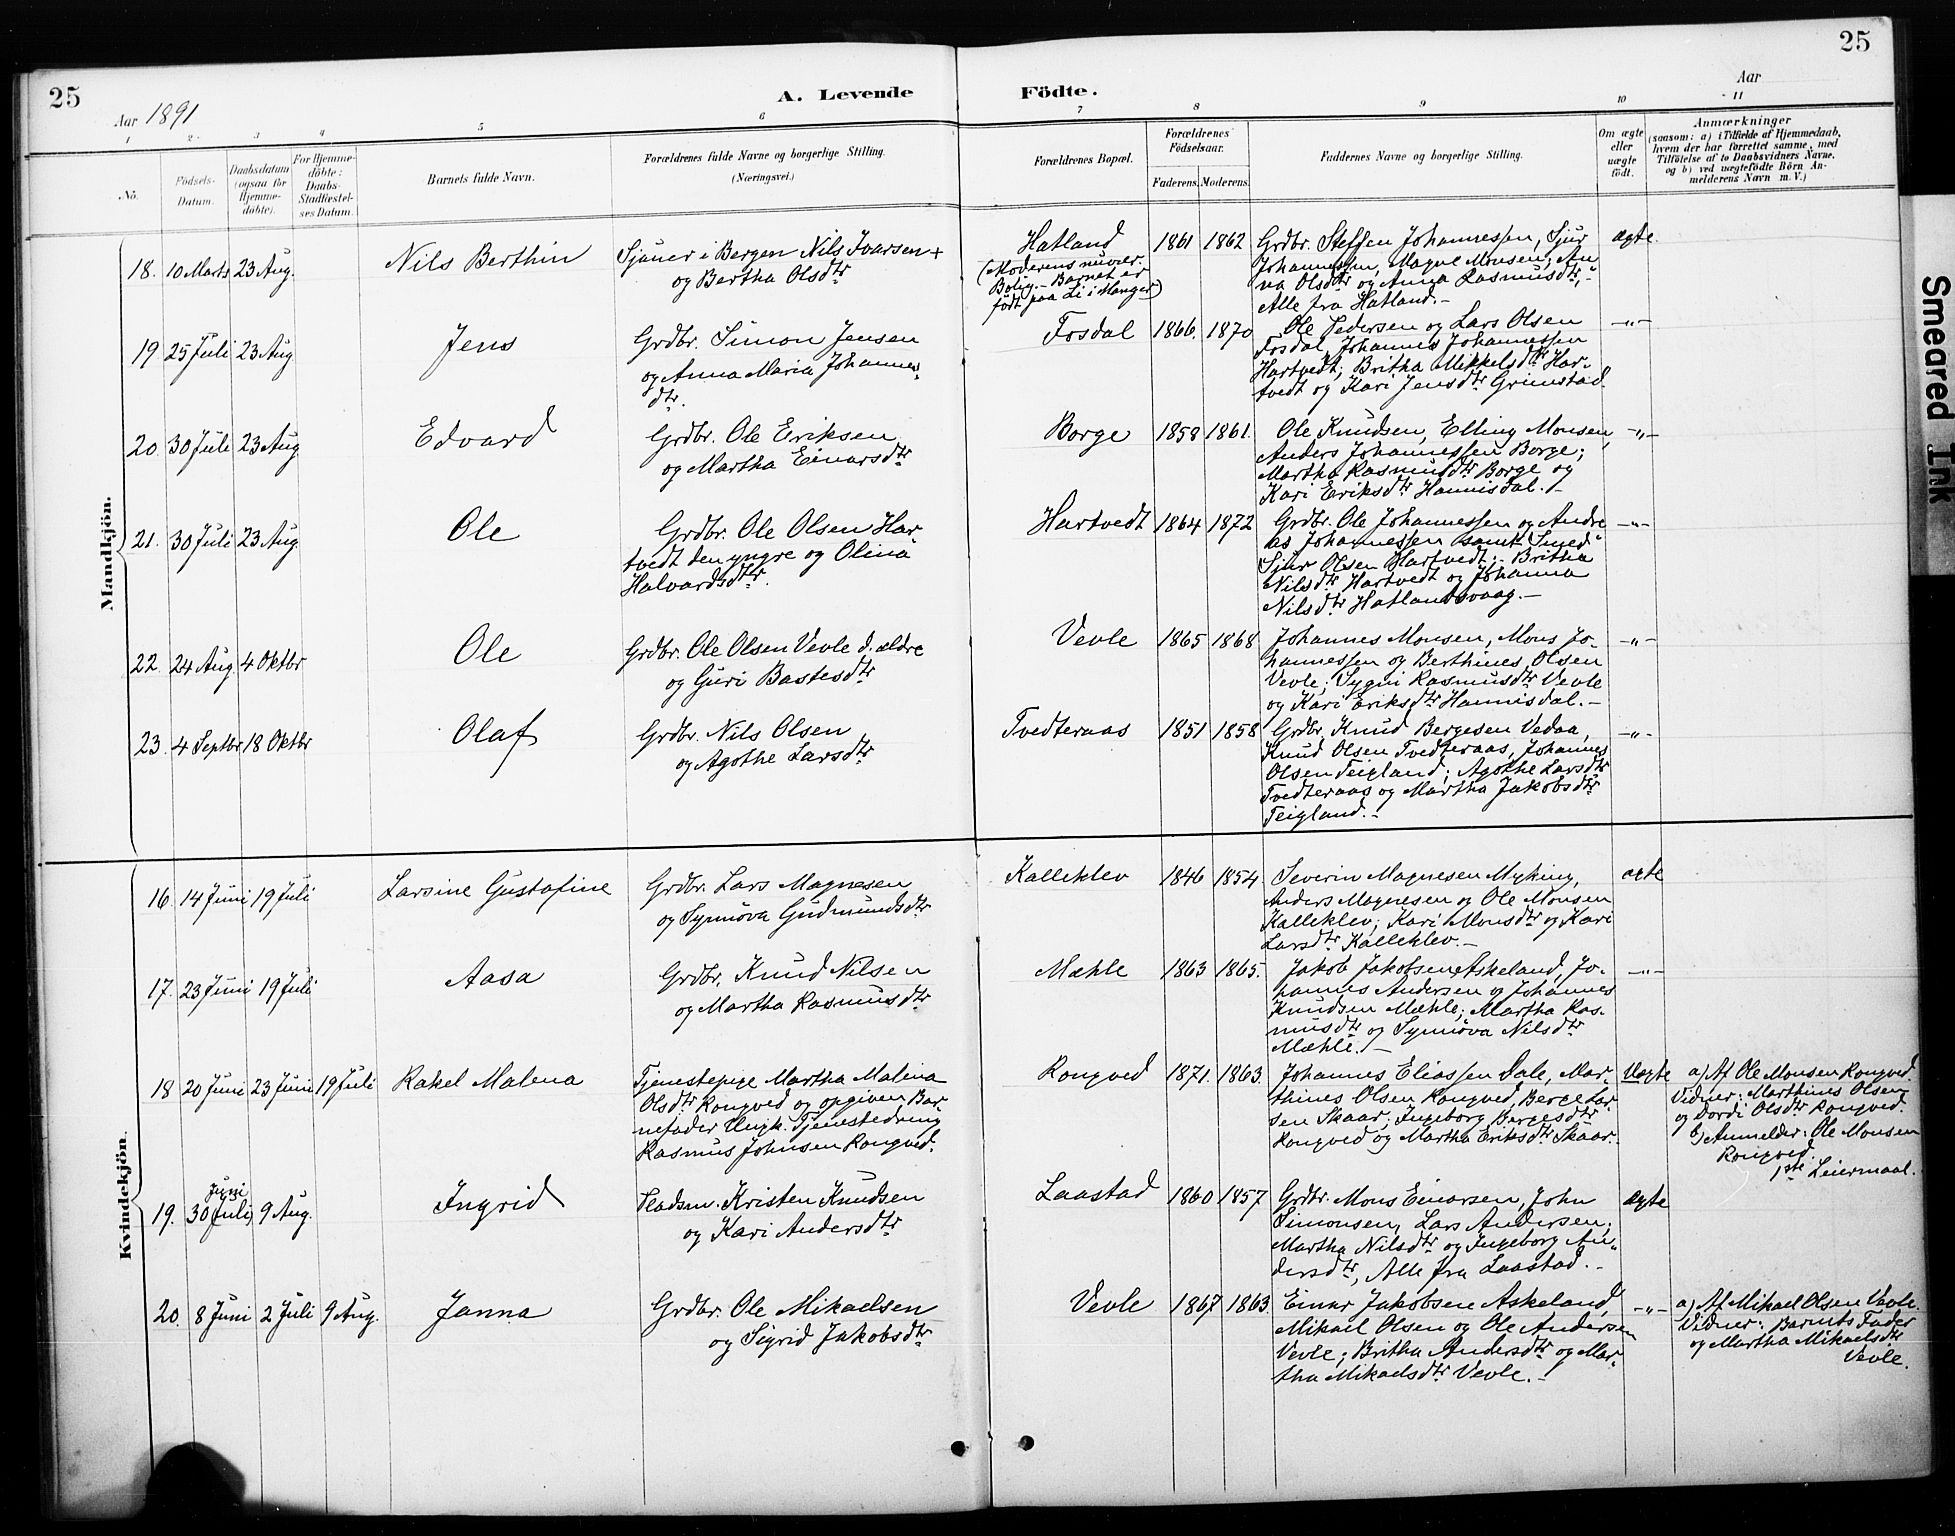 25
25
Aar 1891
A. Levende Födte.
Aar
1 2 3 4 5 6 7 8 9 10 11
No.
Födsels-
Datum.
Daabsdatum
(ogsaa for
Hjemme-
döbte).
For Hjemme-
döbte:
Daabs-
Stadfæstel-
ses Datum.
Barnets fulde Navn.
Forældrenes fulde Navne og borgerlige Stilling.
(Næringsvei.)
Forældrenes Bopæl.
Forældrenes
Födselsaar.
Faderens. Moderens.
Faddernes Navne og borgerlige Stilling.
Om ægte
eller
uægte
födt.
Anmærkninger
(saasom: a) i Tilfælde af Hjemmedaab,
hvem der har forrettet samme, med
Tilföielse af to Daabsvidners Navne,
og b) ved uægtefödte Börn An-
melderens Navn m. V.)
Mandkjön.
18. 10 Marts 23 Aug. Nils Berthin
Sjauer i Bergen Nils Ivarsen +
og Bertha Olsdtr
Hatland
(Moderens nuvær.
Bolig. - Barnet er
født paa Li i Manger)
1861 1862
Grdbr. Steffen Johannessen, Sjur
Johannessen, Magne Monsen; An
na Olsdtr og Anna Rasmusdtr,
Alle fra Hatland. -
ægte.
19 25 Juli 23 Aug Jens
Grdbr. Simon Jensen
og Anna Maria Johannes-
dtr.
Fosdal 1866. 1870
Ole Pedersen og Lars Olsen
Fosdal, Johannes Johannessen
Hartvedt; Britha Mikkelsdtr Har-
tvedt og Kari Jensdtr Grimstad
-"-
20. 30 Juli 23 Aug Edvard
Grdbr. Ole Eriksen
og Martha Einarsdtr
Borge 1858 1861.
Ole Knudsen, Elling Monsen,
Anders Johannessen Borge;
Martha Rasmusdtr Borge og
Kari Eriksdtr Hannisdal. -
-"-
21. 30 Juli 23 Aug. Ole
Grdbr. Ole Olsen Har-
tvedt den yngre og Olina
Halvardsdtr.
Hartvedt 1864 1872
Grdbr. Ole Johannessen og Andre
as Johannessen samt Smed
Sjur Olsen Hartvedt; - Britha
Nilsdtr Hartvedt og Johanna
Nilsdtr Hatlandsvaag. -
-"-
22. 24 Aug. 4 Oktbr Ole
Grdbr. Ole Olsen Vevle d. ældre
og Guri Bastesdtr
Vevle 1865 1868
Johannes Monsen, Mons Jo-
hannessen og Berthines Olsen
Vevle; Sygni Rasmusdtr Vevle
og Kari Eriksdtr Hannisdal. -
-"-
23. 4 Septbr 18 Oktbr Olaf
Grdbr. Nils Olsen
og Agothe Larsdtr
Tvedteraas 1851 1858
Grdbr. Knud Bergesen Vedaa,
Knud Olsen Tvedteraas, Johannes
Olsen Teigland; Agothe Larsdtr
Tvedteraas og Martha Jakobsdtr
Teigland. -
-"-
Kvindekjön.
16. 14 Juni 19 Juli Larsine Gustafine
Grdbr. Lars Magnesen
og Synnöva Gudmundsdtr
Kalleklev 1846 1854
Severin Magnesen Myking,
Anders Magnesen og Ole Monsen
Kalleklev; Kari Monsdtr og Kari
Larsdtr Kalleklev. -
ægte
17. 23 Juni 19 Juli Aasa
Grdbr. Knud Nilsen
og Martha Rasmusdtr
Mæhle 1863 1865.
Jakob Jakobsen Askeland, Jo-
hannes Andersen og Johannes
Knudsen Mæhle; Martha Ras-
musdtr og Synnöva Nilsdtr
Mæhle. -
-"-
18 20 Juni 23 Juni 19 Juli Rakel Malena
Tjenestepige Martha Malina
Olsdtr Rongved og opgiven Bar-
nefader Ungk. Tjenestedreng
Rasmus Johnsen Rongved.
Rongved 1871. 1863.
Johannes Eliassen Dale, Mar-
thines Olsen Rongved, Berge Lar-
sen Skaar; Ingeborg Bergesdtr
Rongved og Martha Eriksdtr Skaar.
Uægte
a) Af Ole Monsen Rongved.
Vidner: Marthines Olsen
og Dordi Olsdtr Rongved.
b) Anmelder: Ole Monsen
Rongved.
1ste Leiermaal.
19. 30 Juli Juni 9 Aug. Ingrid
Pladsm. Kristen Knudsen
og Kari Andersdtr
Laastad 1860 1857
Grdbr. Mons Einarsen, John
Simonsen, Lars Andersen;
Martha Nilsdtr og Ingeborg An-
dersdtr, Alle fra Laastad. -
ægte
20. 8 Juni 2 Juli 9 Aug. Janna
Grdbr. Ole Mikaelsen
og Sigrid Jakobsdtr
Vevle 1867 1863
Einar Jakobsen Askeland,
Mikael Olsen og Ole Andersen
Vevle; Britha Andersdtr og Mar-
tha Mikaelsdtr Vevle. -
-"-
a) Af Mikael Olsen Vevle.
Vidner: Barnets Fader
og Martha Mikaelsdtr
Vevle.
Smeared Ink